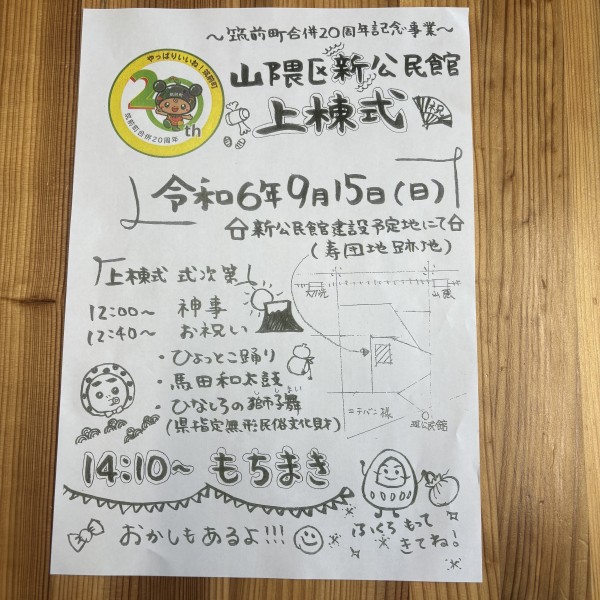 ～筑前町合併20周年記念事業～
やっぱりいいね！筑前町
20th
筑前町合併20周年
山隈区新公民館
上棟式
令和6年9月15日(日)
新公民館建設予定地にて
(寿団地跡地)
「上棟式 式次第」
12:00～ 神事
12:40～ お祝い
・ひょっとこ踊り
・馬田和太鼓
・ひなしろの獅子舞
(県指定無形民俗文化財)
太刀洗
山隈
コテバン様
現公民館
14:10～ もちまき
おかしもあるよ!!!
ふくろもって
きてね!